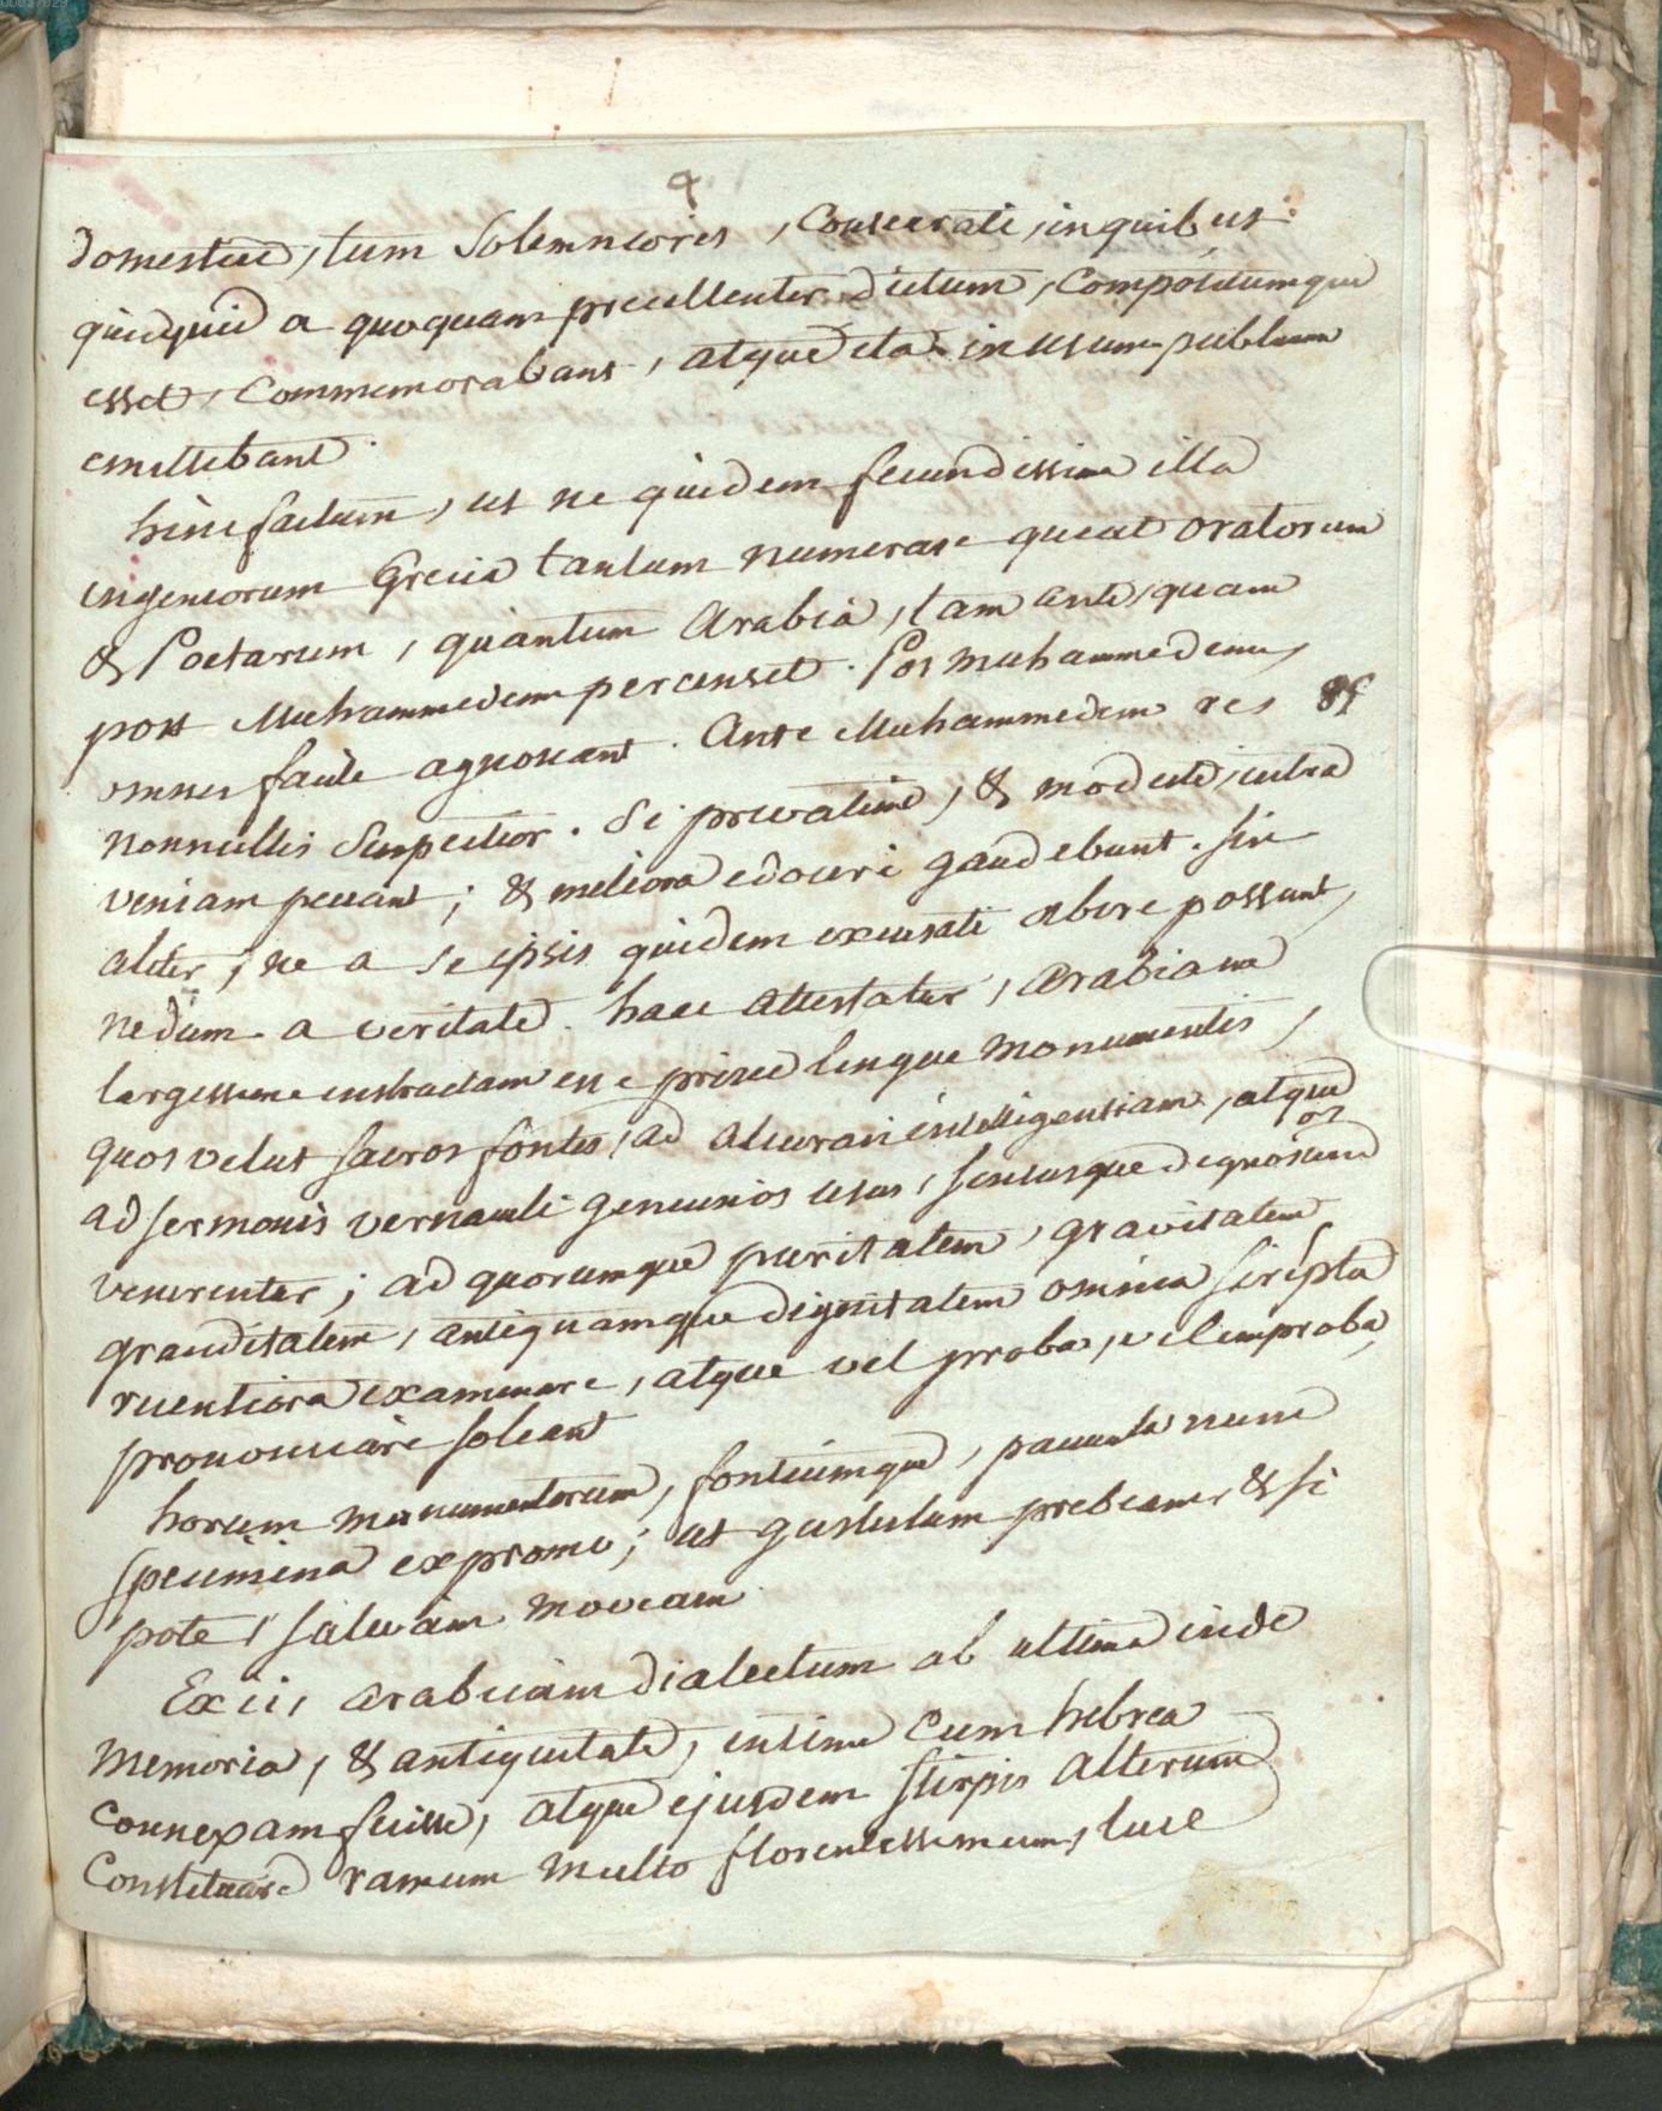 9
domestici, tum solemniores, consecrati, in quibus
quidquid a quoquam precellenter dictum, compositumque
esset, commemorabant, atque ita in usum publicum
emittebant.
hinc factum, ut ne quidem fecundissima illa
ingeniorum Grecia tantum numerare queat oratorum
& Poetarum, quantum Arabia, tam ante, quam
post Muhammedem percenset. Pos Muhammedem,
omnes facile agnoscant. Ante Muhammedem res est
nonnullis suspectior. Si privatim, & modeste, intra
veniam peccant; & meliora edoceri gaudebunt. sin
aliter, ne a se ipsis quidem excusati abire possunt,
nedum a veritate. haec attestatur, Arabiam
largissime instructam esse prisce lingue monumentis,
quos velut sacros fontes, ad Alcorani intelligentiam, atque
ad sermonis vernaculi genuinos usus, sensusque dignoscend os
venerentur; ad quorumque puritatem, gravitatem
granditatem, antiquamque dignitatem omnia scripta
recentiora examinare, atque vel proba, vel improba,
pronunciare soleant
horum monumentorum, fontiumque, paucula nunc
specimina expromo; ut gustulum prebeam, & si
pote, salivam moveam
Ex iis, arabicam dialectum ab ultima inde
memoria, & antiquitate, intime cum hebrea
connexam fuisse, atque ejusdem stirpis alterum
Constituere ramum multo florentissimum, luce